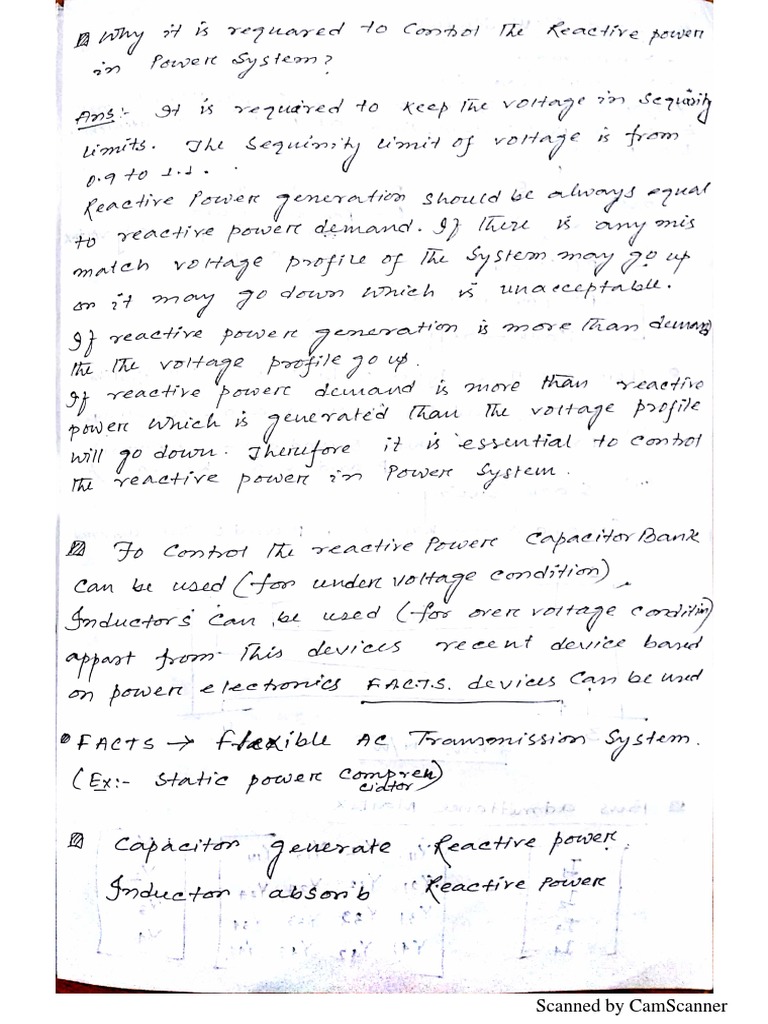 Why it is requared to Control The Reactive power
in Power System?
Ans:- It is requared to keep the voltage in Sequinity
Limits. The Sequinity Limit of voltage is from
0.9 to 1.1.
Reactive Power generation should be always equal
to reactive power demand. If There is any mis
match voltage profile of The System may go up
or it may go down which is unacceptable.
If reactive power generation is more Than demand
the The voltage profile go up.
If reactive power demand is more than reactive
power which is generated Than The voltage profile
will go down. Therefore it is essential to control
The reactive power in Power System.
To Control The reactive Power Capacitor Bank
can be used (for under voltage condition)
Inductors can be used (for over voltage condition)
appart from This devices recent device based
on power electronics FACTS. devices Can be used
FACTS → flexible AC Transmission System.
(Ex:- Static power
Capacitor generate Reactive power.
Inductor absorb Reactive Power
Scanned by CamScanner